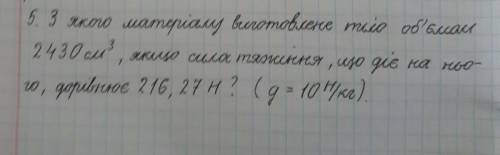 5. З якого матеріалу виготовлене тіло об'ємом
2430 см³, якщо сила тяжіння, що діє на ньо-
го, дорівнює 216,27 Н? (g = 10 Н/кг).